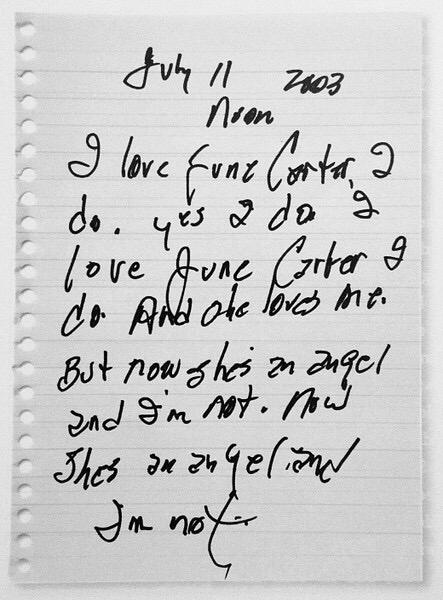 July 11 2003
Noon
I love June Carter, I
do. Yes I do. I
love June Carter I
do. And she loves me.
But now shes an angel
and I'm not. Now
Shes an angel and
I'm not.